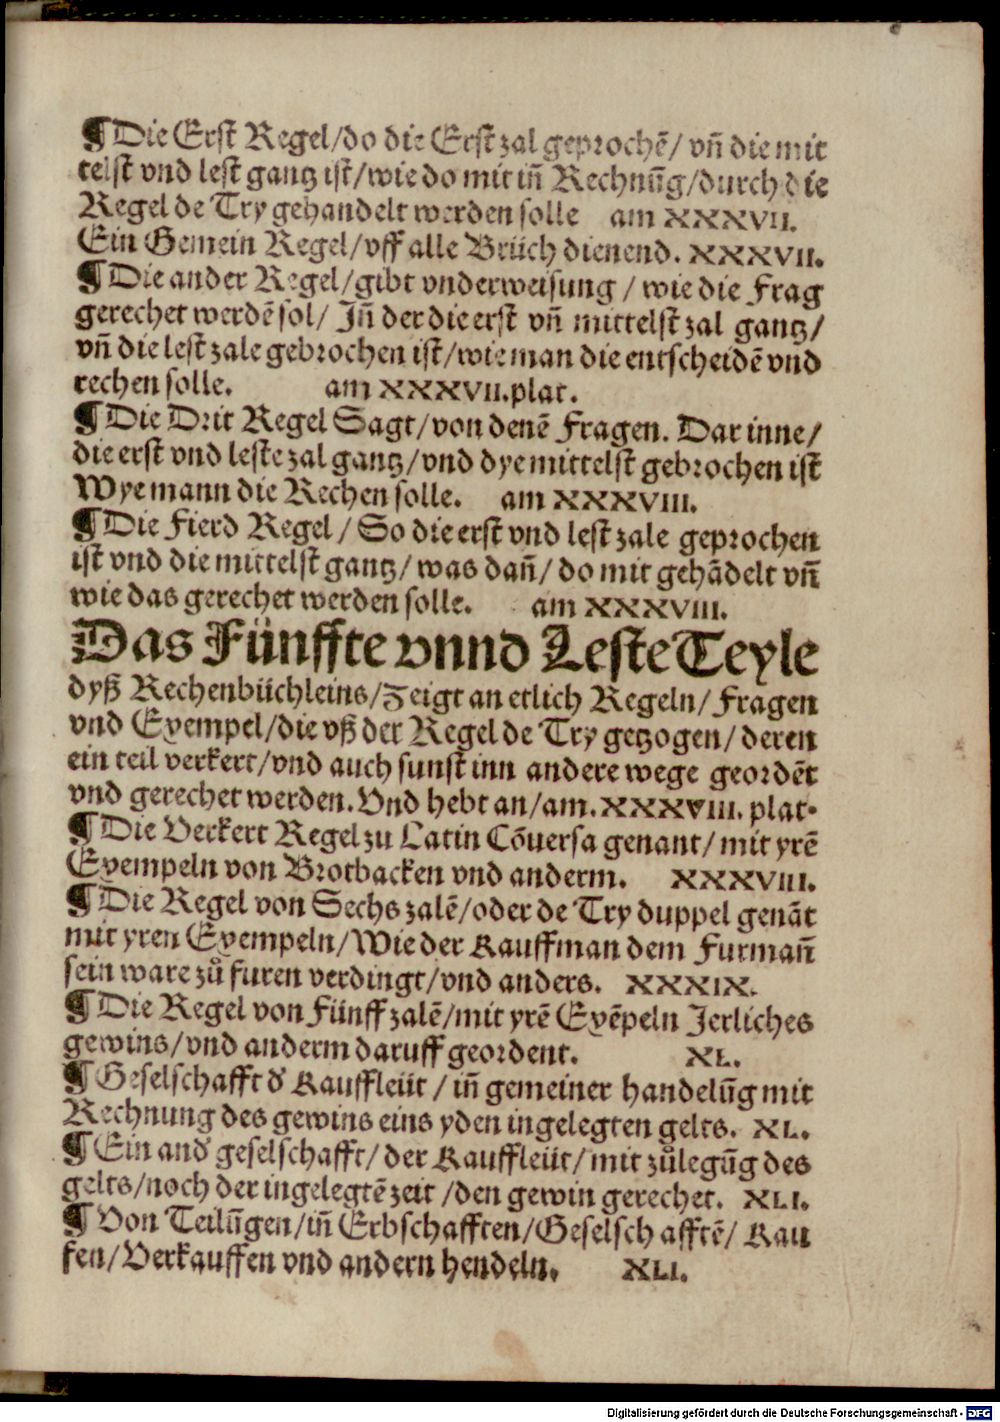 ¶ Die Erst Regel/do die Erst zal geprochē/ vñ die mit
telst vnd lest gantz ist/wie do mit iñ Rechnūg/durch die
Regel de Try gehandelt werden solle am XXXVII.
Ein Gemein Regel/vff alle Brüch dienend. XXXVII.
¶ Die ander Regel/gibt vnderweisung / wie die Frag
gerechet werdē sol/ Iñ der die erst vñ mittelst zal gantz/
vñ die lest zale gebrochen ist/wie man die entscheidē vnd
rechen solle. am XXXVII.plat.
¶ Die Drit Regel Sagt/von denē Fragen. Dar inne/
die erst vnd leste zal gantz/vnd dye mittelst gebrochen ist
Wye mann die Rechen solle. am XXXVIII.
¶ Die Fierd Regel / So die erst vnd lest zale geprochen
ist vnd die mittelst gantz/ was dañ/ do mit gehādelt vñ
wie das gerechet werden solle. am XXXVIII.
Das Fünffte vnnd Leste Teyle
dyß Rechenbüchleins/Zeigt an etlich Regeln/ Fragen
vnd Exempel/die vß der Regel de Try getzogen/ deren
ein teil verkert/vnd auch sunst inn andere wege geordēt
vnd gerechet werden. Vnd hebt an/am. XXXVIII. plat.
¶ Die Verkert Regel zu Latin Cōuersa genant/ mit yrē
Exempeln von Brotbacken vnd anderm. XXXVIII.
¶ Die Regel von Sechs zalē/oder de Try duppel genāt
mit yren Exempeln/Wie der Kauffman dem Furmañ
sein ware zů furen verdingt/vnd anders. XXXIX.
¶ Die Regel von Fünff zalē/mit yrē Exēpeln Jerliches
gewins/vnd anderm daruff geordent. XL.
¶ Geselschafft d' Kauffleüt / iñ gemeiner handelūg mit
Rechnung des gewins eins yden ingelegten gelts. XL.
¶ Ein and' geselschafft/ der Kauffleüt/ mit zůlegūg des
gelts/noch der ingelegtē zeit /den gewin gerechet. XLI.
¶ Von Teilūgen/iñ Erbschafften/Geselschafftē/ Kau
fen/Verkauffen vnd andern hendeln. XLI.
Digitalisierung gefördert durch die Deutsche Forschungsgemeinschaft - DFG